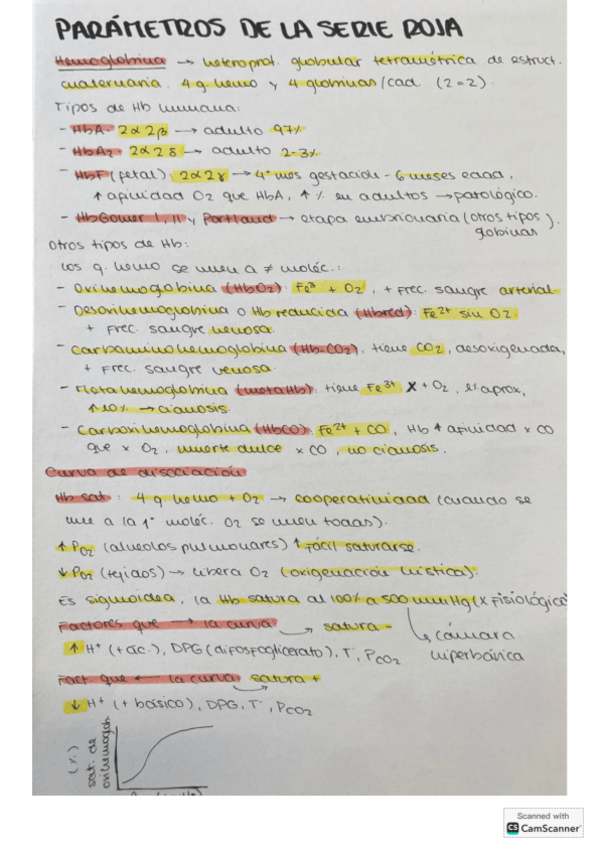 PARÁMETROS DE LA SERIE ROJA
Hemoglobina → heteroprot. globular tetramétrica de estruct.
cuaternaria. 4 g. hemo y 4 globinas/cad. (2=2).
Tipos de Hb humana:
- HbA: 2α2β → adulto 97%
- HbA2: 2α2δ → adulto 2-3%
- HbF (fetal): 2α2γ → 4º mes gestación - 6 meses edad,
↑ afinidad O2 que HbA, ↑ % en adultos → patológico.
- HbGower I, II y Portland → etapa embrionaria (otros tipos).
globinas
Otros tipos de Hb:
Los g. hemo se unen a ≠ moléc.:
- Oxihemoglobina (HbO2): + O2, + frec. sangre arterial.
- Desoxihemoglobina o Hb reducida (Hbred): Fe2+ sin O2.
+ frec. sangre venosa.
- Carbaminohemoglobina (Hb-CO2): tiene CO2, desoxigenada,
+ frec. sangre venosa.
- Metahemoglobina (metaHb): tiene Fe3+ X + O2, 1% aprox,
↑10% → cianosis.
- Carboxihemoglobina (HbCO): Fe2+ + CO, Hb ↑ afinidad x CO
que x O2, muerte dulce x CO, no cianosis.
Curva de disociación
Hb sat: 4 g. hemo + O2 → cooperatividad (cuando se
une a la 1ª moléc. O2 se unen todas).
↑ PO2 (alveolos pulmonares) ↑ fácil saturarse.
↓ PO2 (tejidos) → libera O2 (oxigenación tística).
Es sigmoidea, la Hb satura al 100% a 500 mmHg (X fisiológico)
Factores que → la curva satura -
cámara
hiperbárica
↑ H+ (+ác.), DPG (difosfoglicerato), Tª, PCO2
Fact que ← la curva satura +
↓ H+ (+ básico), DPG, Tª, PCO2
(%)
sat. de
oxihemoglob.
Scanned with
CS CamScanner